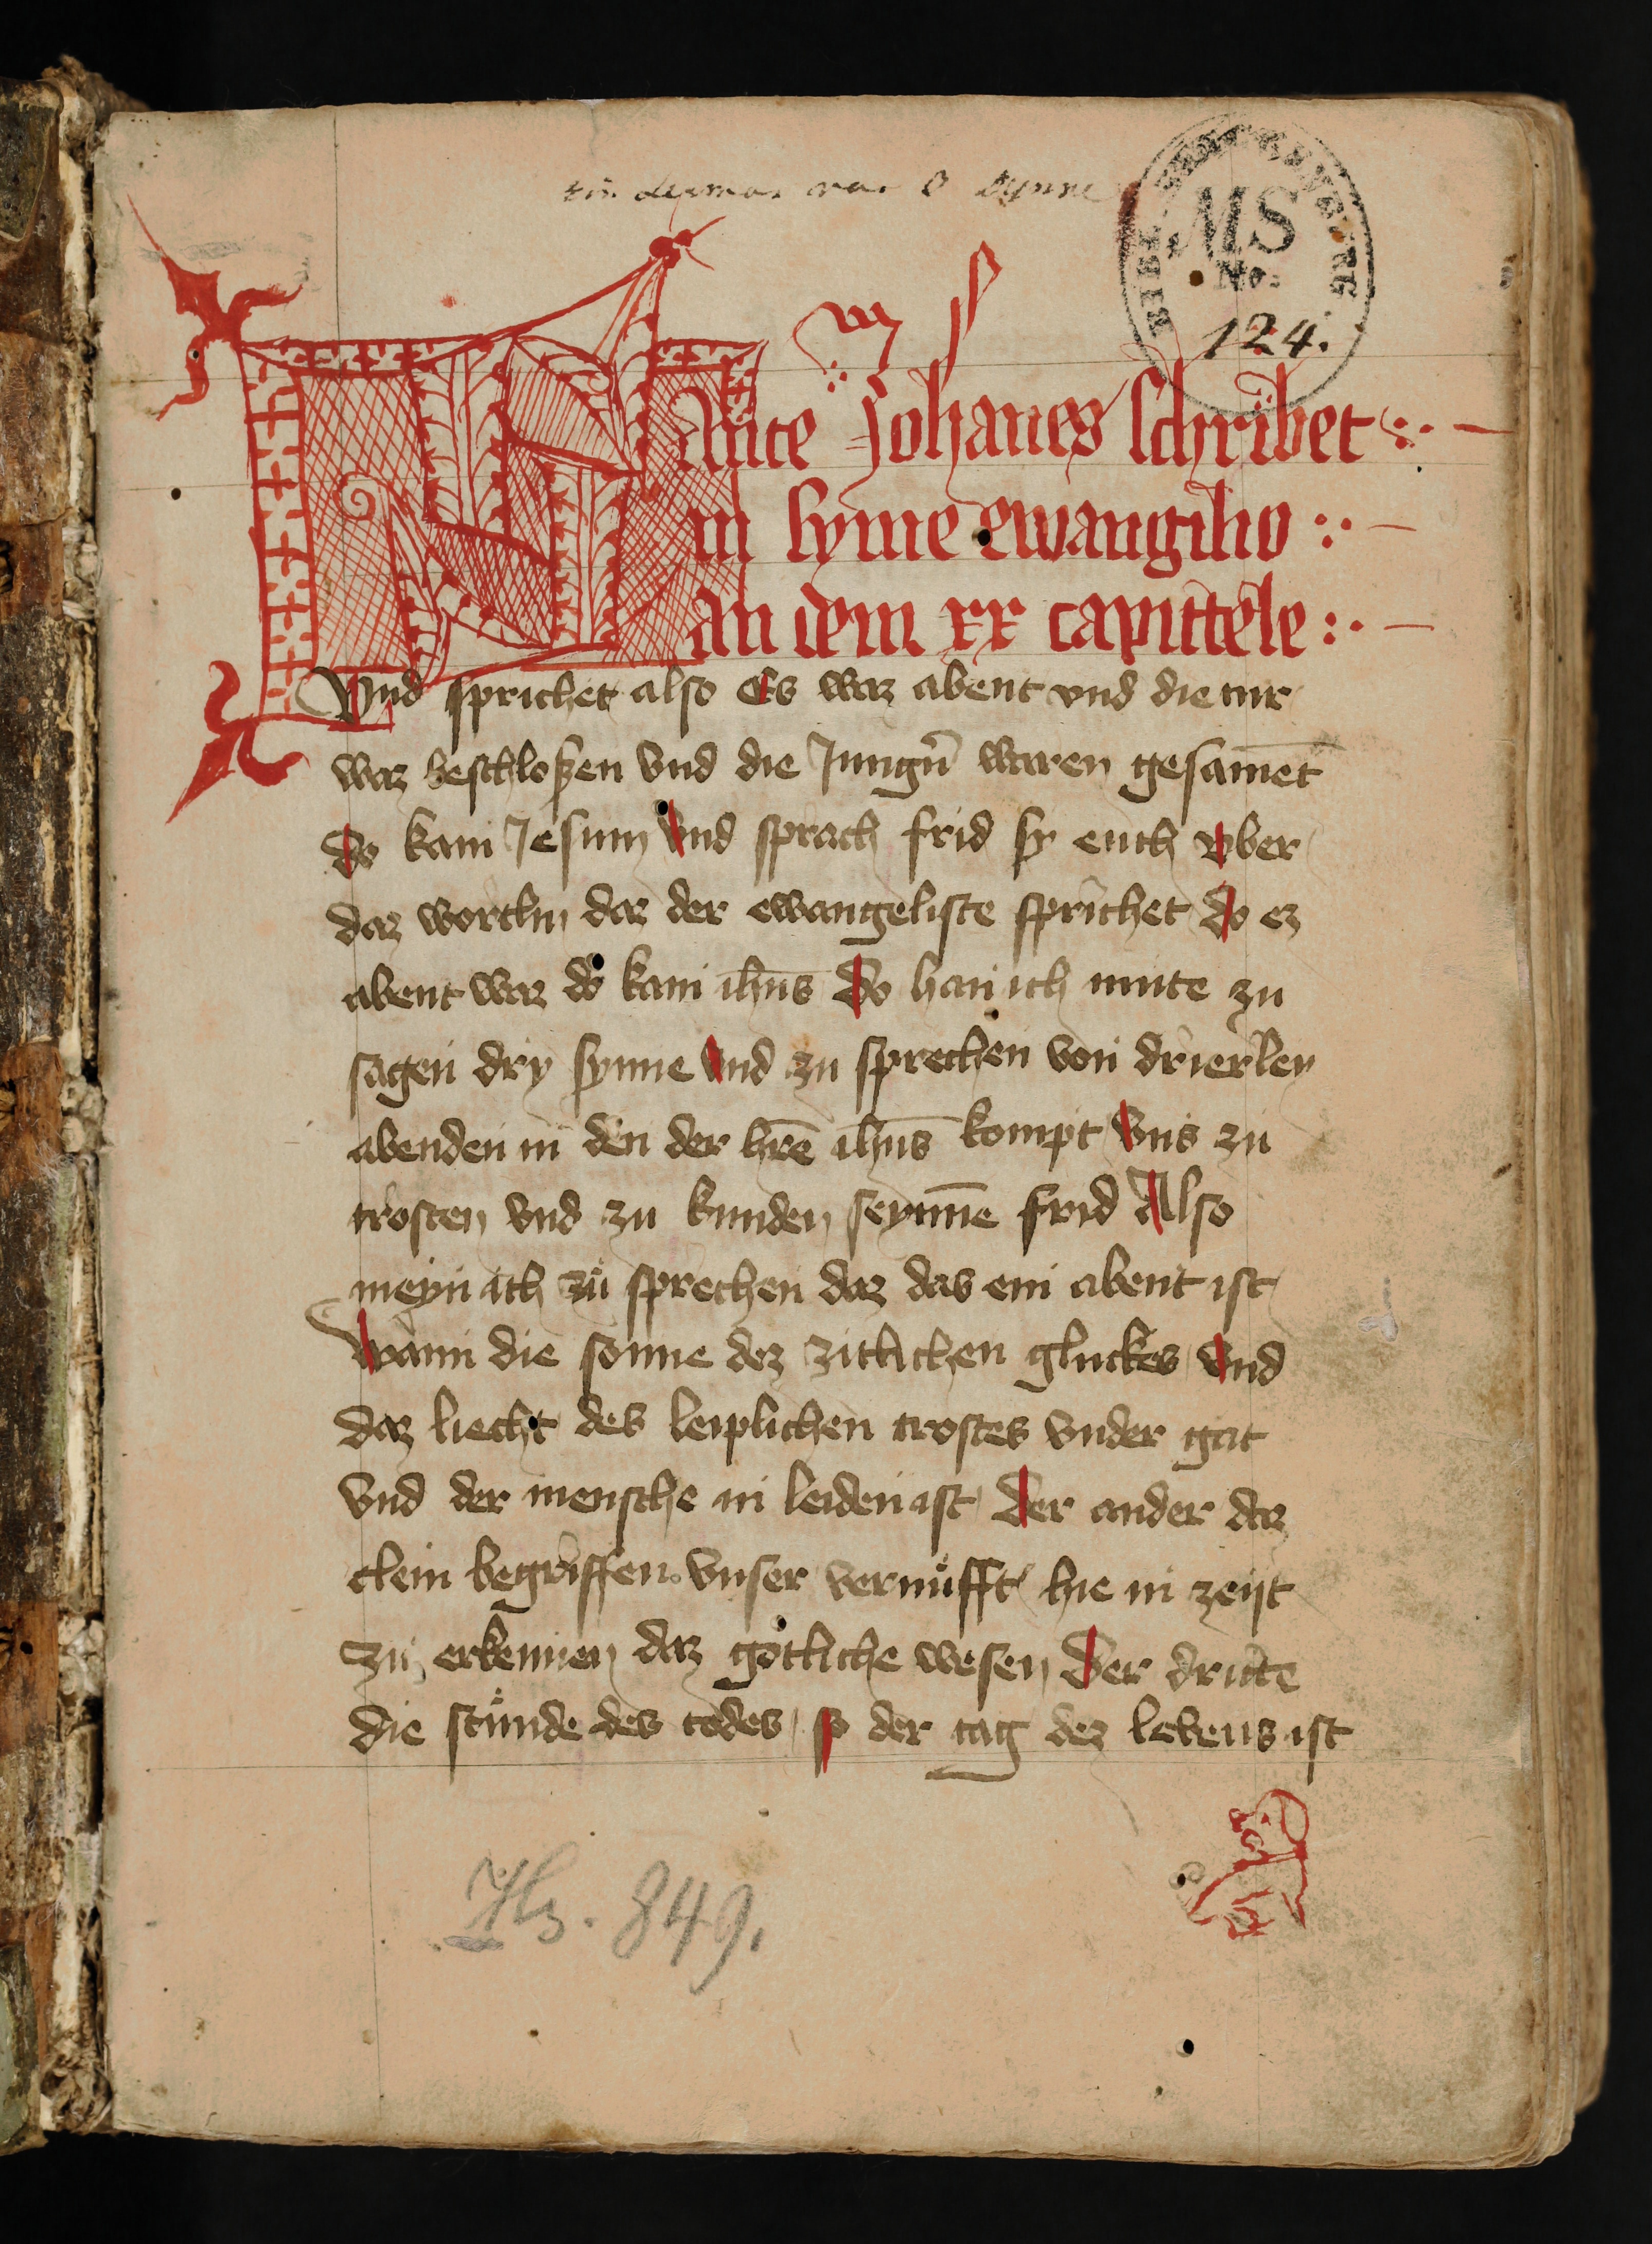 MS
No:
124.
Sante Johanes schribet
in syme ewangilio
an dem xx capittele
Vnd sprichet also Es waz abent vnd die tur
waz beschloßen vnd die Jungn̄ waren gesāmet
do kam Jesum vnd sprach frid sy euch vber
daz wortlin daz der ewangeliste sprichet do ez
abent waz do kam ihūs do han ich mute zu
sagen dry synne vnd zu sprechen von drierley
abenden in den der hr̄e ihūs kompt vns zu
trosten vnd zu kunden seyn̄ne frid Also
meyn ich zu sprechen daz das ein abent ist
wann die sonne dez zitlichen gluckes vnd
daz liecht des leiplichen trostes vnder gat
vnd der mensche in leiden ist der ander daz
clein begriffen vnser vernufft hie in zeijt
zu erkennen daz gotliche wesen der dritte
die stunde des todes so der tag dez lebens ist
Hs. 849.